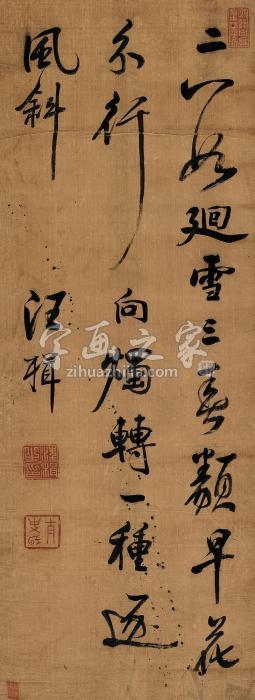 二八如廻雪三春類早花
分行向燭轉一種逐
風斜 汪楫
字画之家
www.zihuazhijia.com